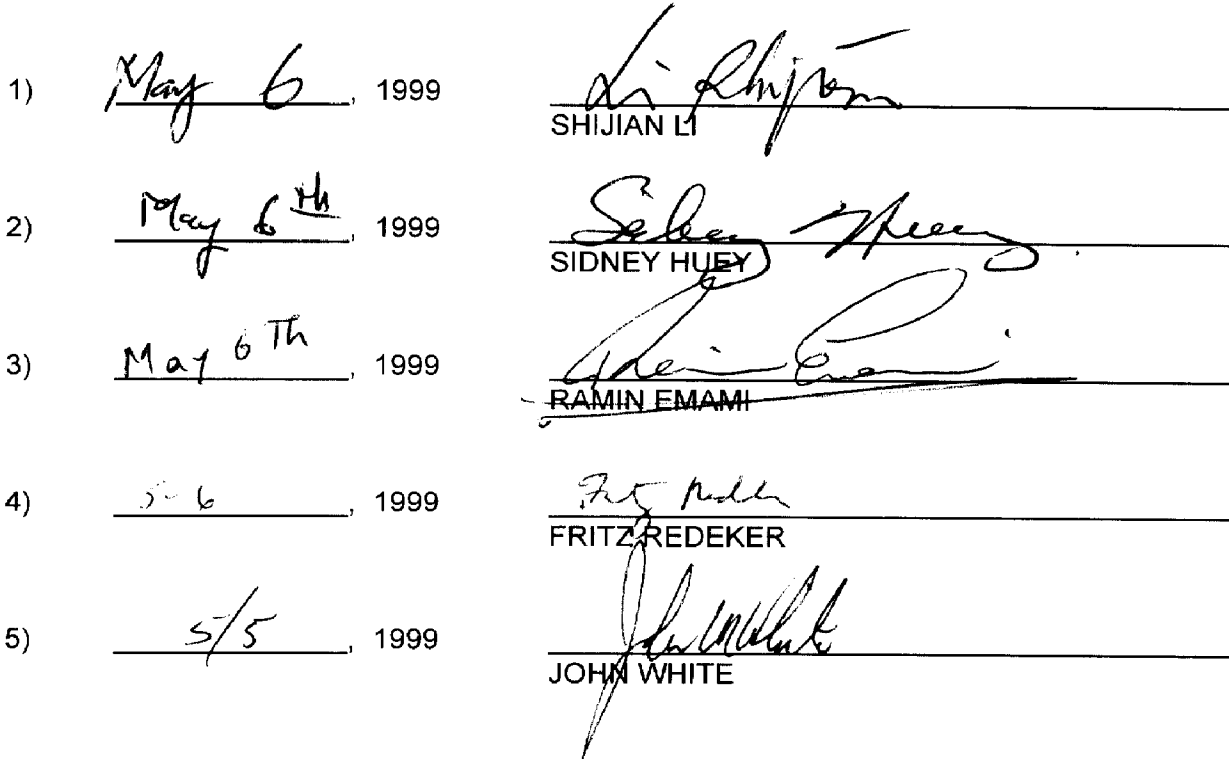 1) May 6, 1999 Li Shijian
SHIJIAN LI
2) May 6th, 1999 Sidney Huey
SIDNEY HUEY
3) May 6Th, 1999 Ramin Emami
RAMIN EMAMI
4) 5-6, 1999 Fritz Redeker
FRITZ REDEKER
5) 5/5, 1999 John M White
JOHN WHITE